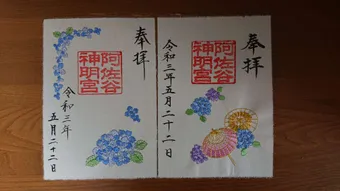 奉拝
阿佐谷
神明宮
令和三年
五月二十二日
奉拝
阿佐谷
神明宮
令和三年五月二十二日